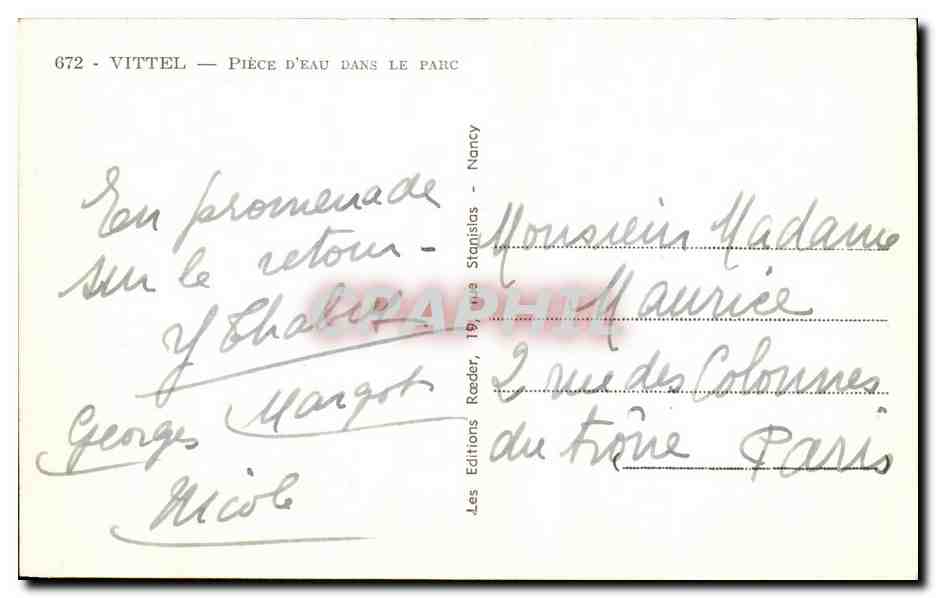 672 - VITTEL — PIÈCE D'EAU DANS LE PARC
En promenade
sur le retour -
Y
Margot
Georges
Nicole
Les Editions Rœder, 19, rue Stanislas - Nancy
CPAPHIL
Monsieur Madame
Maurice
2 rue des Colonnes
du trône Paris